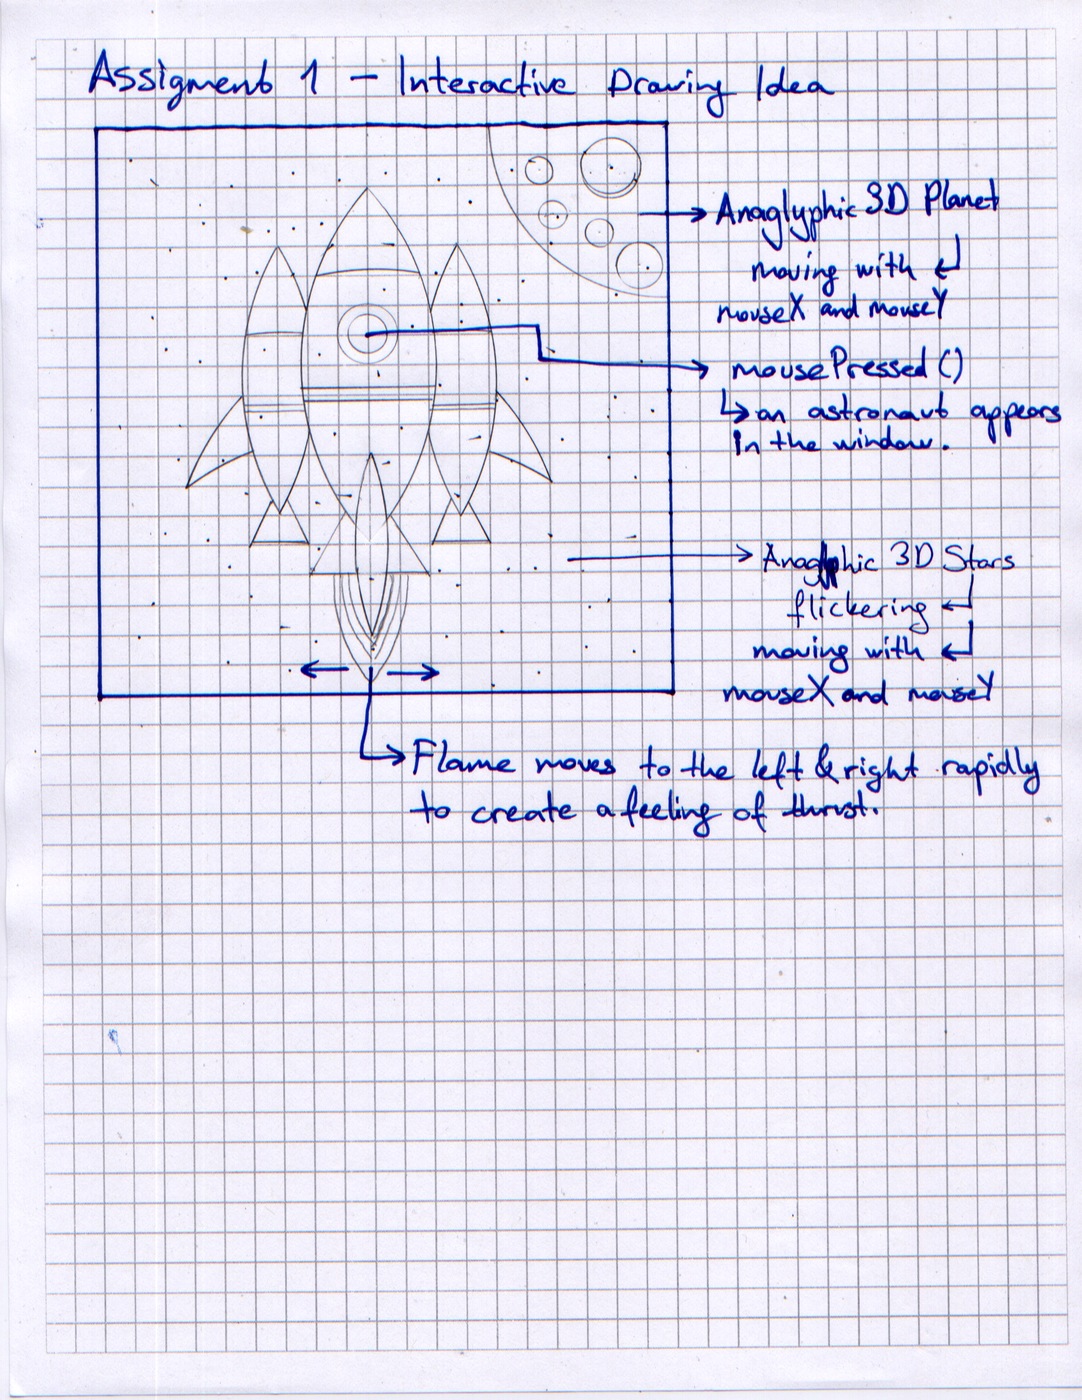 Assigment 1 - Interactive Drawing Idea
Anaglyphic 3D Planet
moving with
mouseX and mouseY
mousePressed()
an astronaut appears
in the window.
Anaglyphic 3D Stars
flickering
moving with
mouseX and mouseY
Flame moves to the left & right rapidly
to create a feeling of thrust.